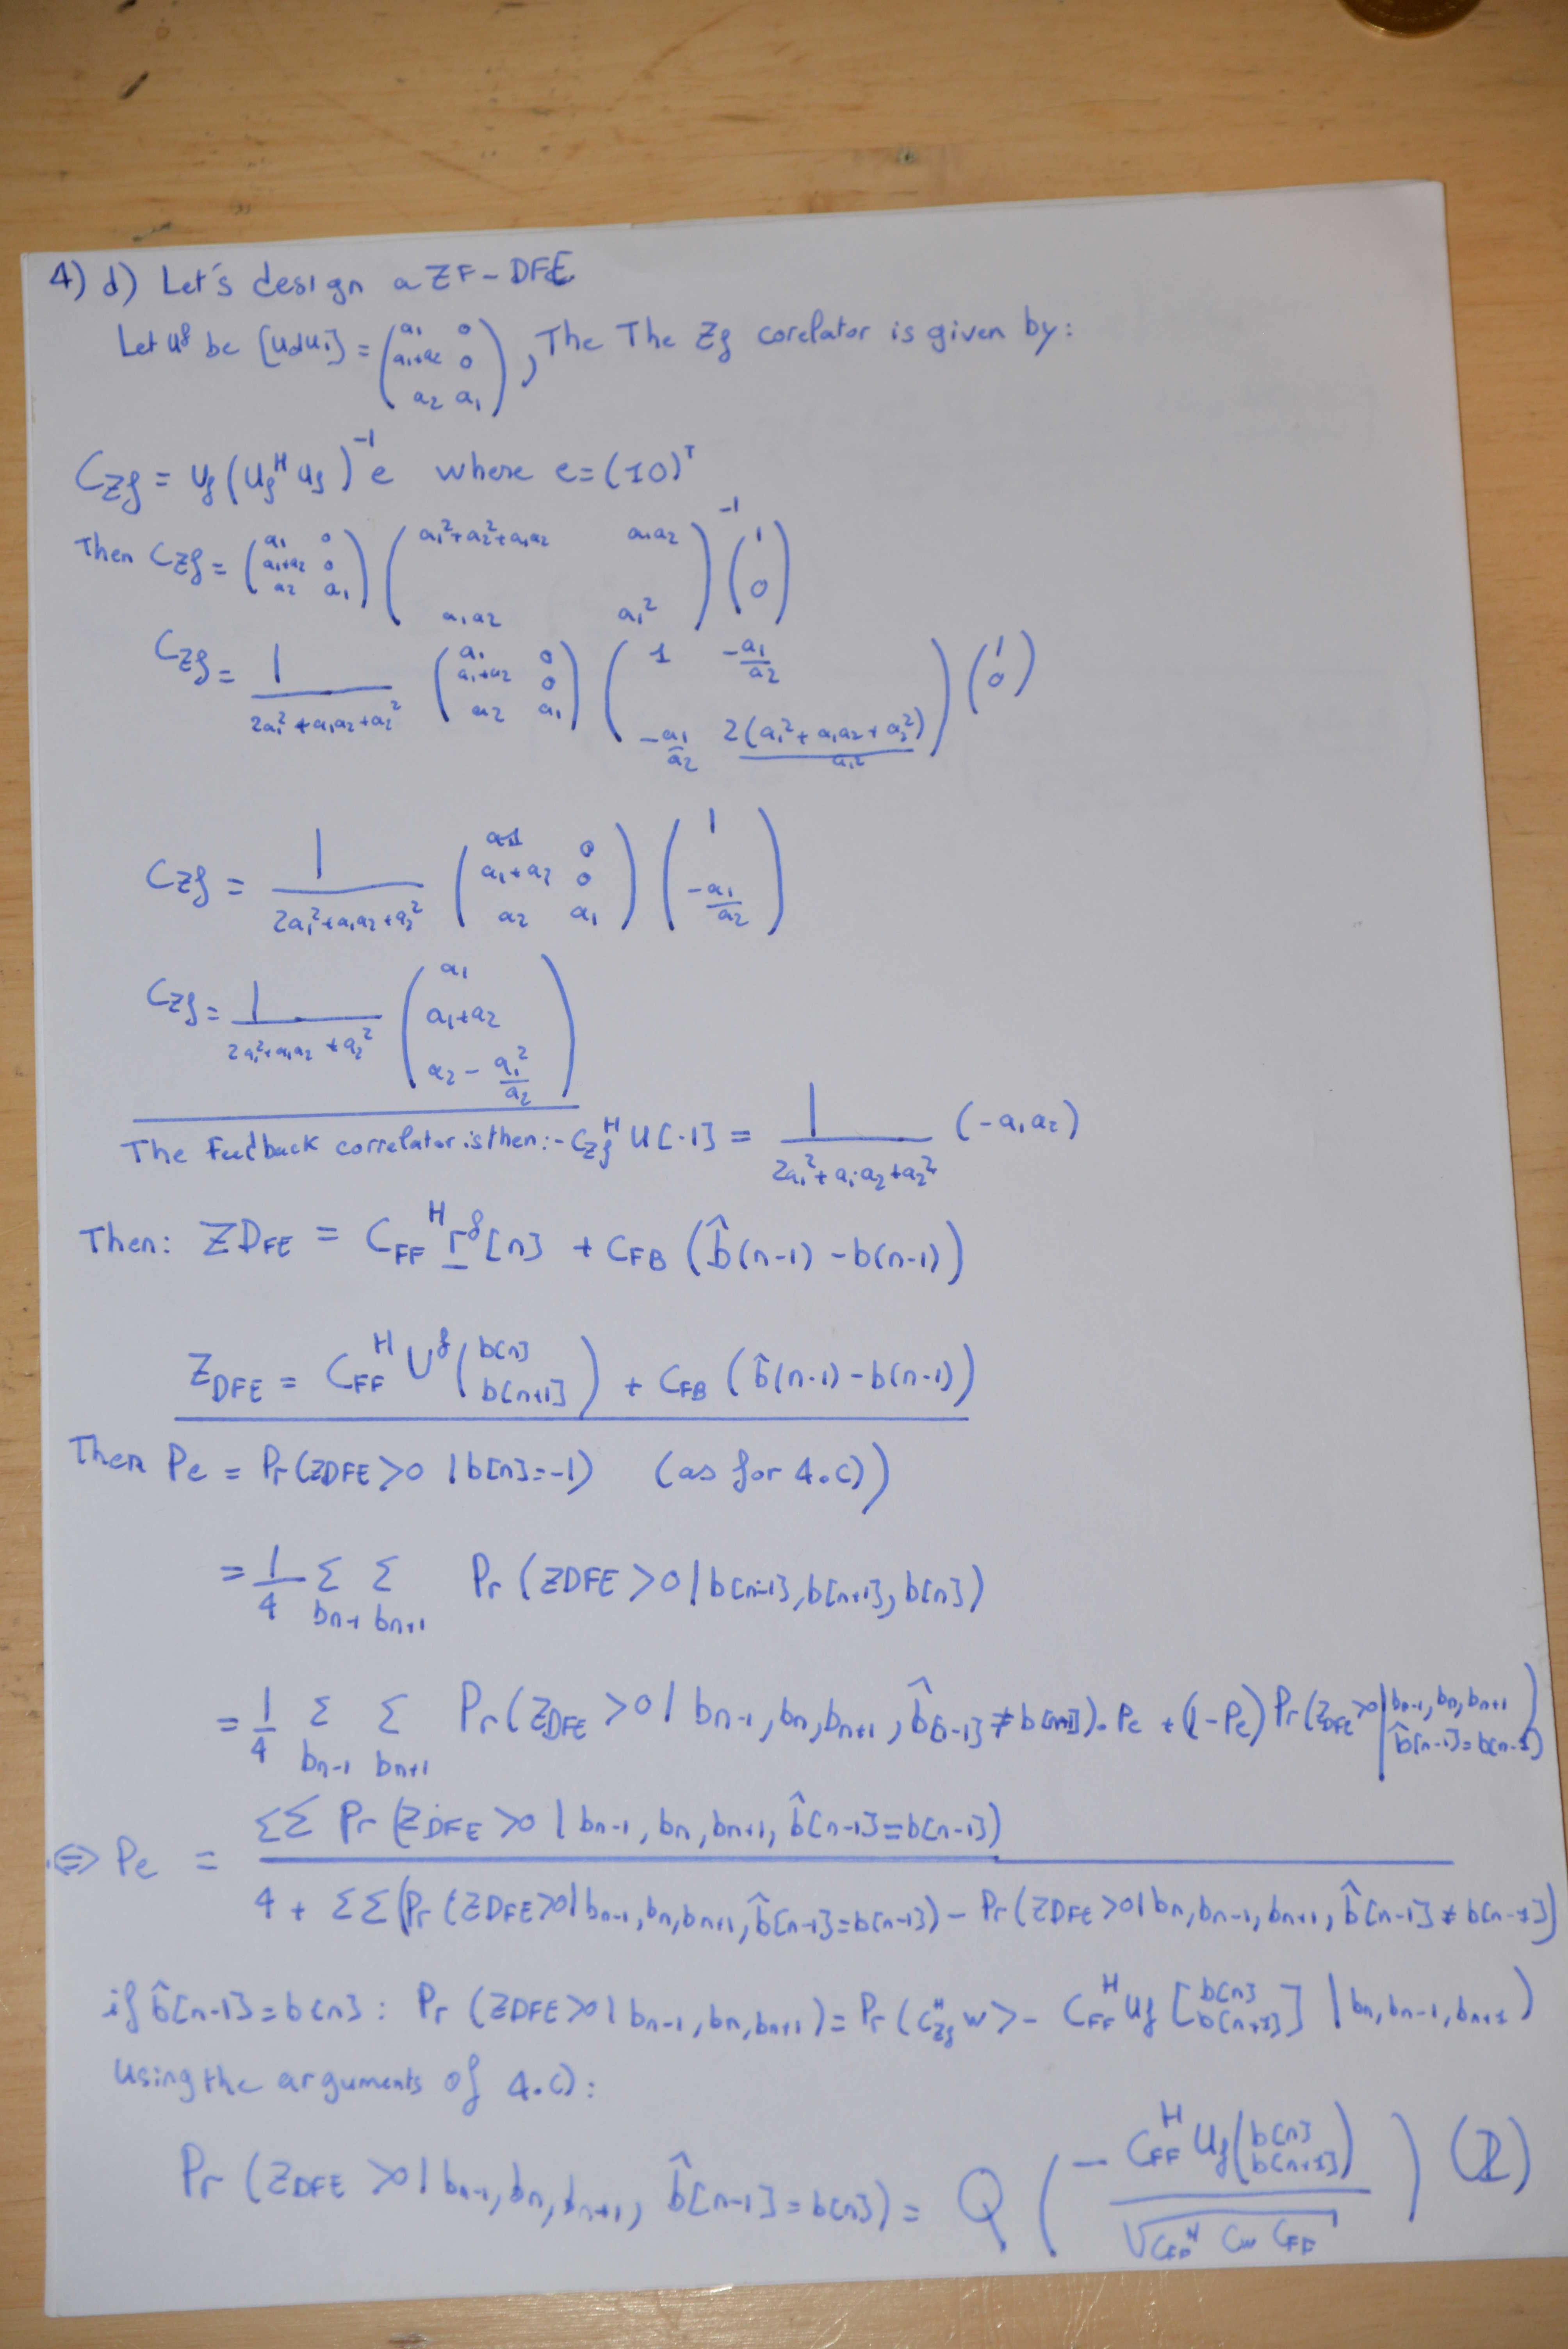 4) d) Let's design a ZF-DFE
Let U^f be [u_d u_i] = ( a_1 0 ; a_1+a_2 0 ; a_2 a_1 ), The The Zf corelator is given by:
C_Zf = U_f (U_f^H U_f)^-1 e where e = (1 0)^T
Then C_Zf = ( a_1 0 ; a_1+a_2 0 ; a_2 a_1 ) ( a_1^2+a_2^2+a_1a_2 a_1a_2 ; a_1a_2 a_1^2 )^-1 ( 1 ; 0 )
C_Zf = 1/(2a_1^2+a_1a_2+a_2^2) ( a_1 0 ; a_1+a_2 0 ; a_2 a_1 ) ( 1 -a_1/a_2 ; -a_1/a_2 2(a_1^2+a_1a_2+a_2^2)/a_1^2 ) ( 1 ; 0 )
C_Zf = 1/(2a_1^2+a_1a_2+a_2^2) ( a_1 0 ; a_1+a_2 0 ; a_2 a_1 ) ( 1 ; -a_1/a_2 )
C_Zf = 1/(2a_1^2+a_1a_2+a_2^2) ( a_1 ; a_1+a_2 ; a_2 - a_1^2/a_2 )
The Feedback correlator is then: - C_Zf^H U[-1] = 1/(2a_1^2+a_1a_2+a_2^2) (-a_1a_2)
Then: Z_DFE = C_FF^H r^f[n] + C_FB (b̂(n-1) - b(n-1))
Z_DFE = C_FF^H U^f ( b[n] ; b[n+1] ) + C_FB (b̂(n-1) - b(n-1))
Then Pe = Pr(Z_DFE > 0 | b[n]=-1) (as for 4.c))
= 1/4 Σ_{b_n-1} Σ_{b_n+1} Pr(Z_DFE > 0 | b[n-1], b[n+1], b[n])
= 1/4 Σ_{b_n-1} Σ_{b_n+1} Pr(Z_DFE > 0 | b_n-1, b_n, b_n+1, b̂[n-1] ≠ b[n-1]). Pe + (1-Pe) Pr(Z_DFE > 0 | b_n-1, b_n, b_n+1 b̂[n-1] = b[n-1])
⇔ Pe = ΣΣ Pr(Z_DFE > 0 | b_n-1, b_n, b_n+1, b̂[n-1] = b[n-1]) / 4 + ΣΣ(Pr(Z_DFE > 0 | b_n-1, b_n, b_n+1, b̂[n-1] = b[n-1]) - Pr(Z_DFE > 0 | b_n, b_n-1, b_n+1, b̂[n-1] ≠ b[n-1]))
if b̂[n-1] = b[n]: Pr(Z_DFE > 0 | b_n-1, b_n, b_n+1) = Pr(C_Zf^H w > - C_FF^H U_f [ b[n] ; b[n+1] ] | b_n, b_n-1, b_n+1)
Using the arguments of 4.c):
Pr(Z_DFE > 0 | b_n-1, b_n, b_n+1, b̂[n-1] = b[n]) = Q ( - C_FF^H U_f ( b[n] ; b[n+1] ) / √(C_FF^H C_w C_FF) )